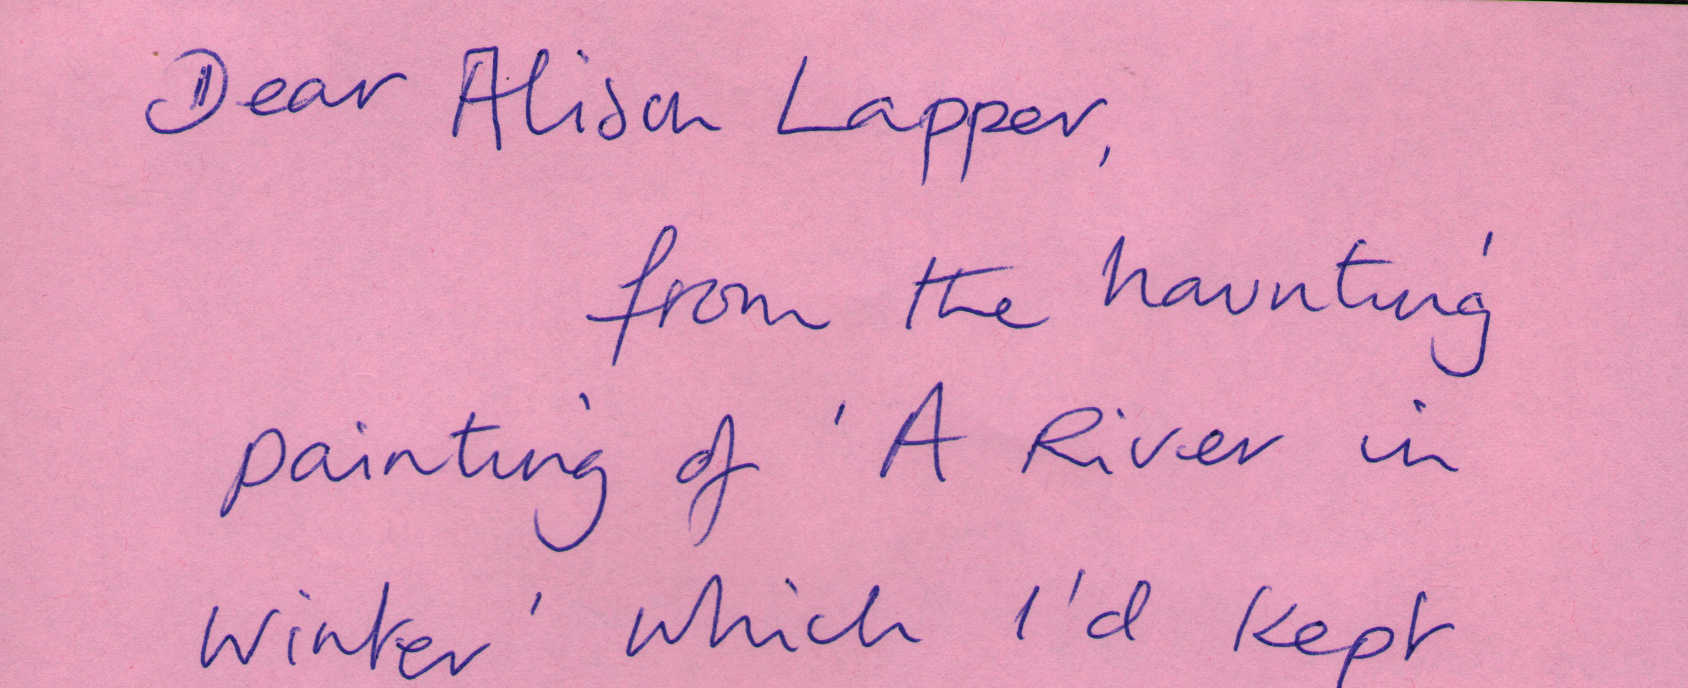 Dear Alison Lapper,
from the haunting
painting of 'A River in
Winter' which I'd kept